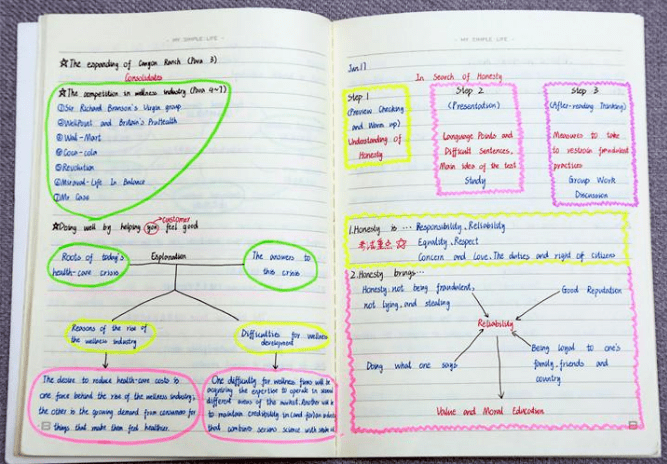 MY SIMPLE LIFE
☆The expanding of Canyon Ranch (Para 3)
Consolidates
☆The competition in wellness industry (Para 4~7)
①Sir Richard Branson's Virgin group
②WellPoint and Britain's PruHealth
③Wal-Mart
④Coca-cola
⑤Revolution
⑥Miraval-Life In Balance
⑦Mr Case
☆Doing well by helping you feel good
customer
Roots of today's
health-care crisis
Exploration
The answers to
this crisis
Reasons of the rise of
the wellness industry
Difficulties for wellness
development
The desire to reduce health-care costs is
one force behind the rise of the wellness industry;
the other is the growing demand from consumers for
things that make them feel healthier.
One difficulty for wellness firms will be
acquiring the expertise to operate in several
different areas of the market. Another will be
to maintain credibility in
that combine serious science with
MY SIMPLE LIFE
Jan 17
In Search of Honesty
Step 1
(Preview Checking
and Warm up)
Understanding of
Honesty
Step 2
(Presentation)
Language Points and
Difficult Sentences,
Main idea of the text
Study
Step 3
(After-reading Thinking)
Measures to take
to restrain fraudulent
practices
Group Work
Discussion
1.Honesty is ... Responsibility, Reliability
重点 ☆ Equality, Respect
Concern and Love, The duties and right of citizens
2.Honesty brings...
Honesty: not being fraudulent,
not lying, and stealing
Good Reputation
Reliability
Doing what one says
Being loyal to one's
family, friends and
country
Value and Moral Education